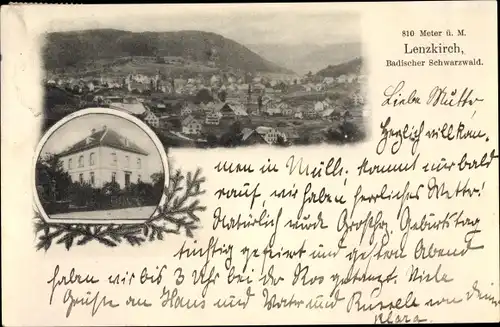 810 Meter ü. M.
Lenzkirch,
Badischer Schwarzwald.
Liebe Mutter,
Herzlich willkom-
men in Müllh. kommt nur bald
rauf, wir haben herrliches Wetter!
Natürlich wurde Großhgl. Geburtstag
tüchtig gefeiert und gestern Abend
haben wir bis 3 Uhr bei der getanzt. Viele
Grüße an Hans und Vater und von deiner
Klara.